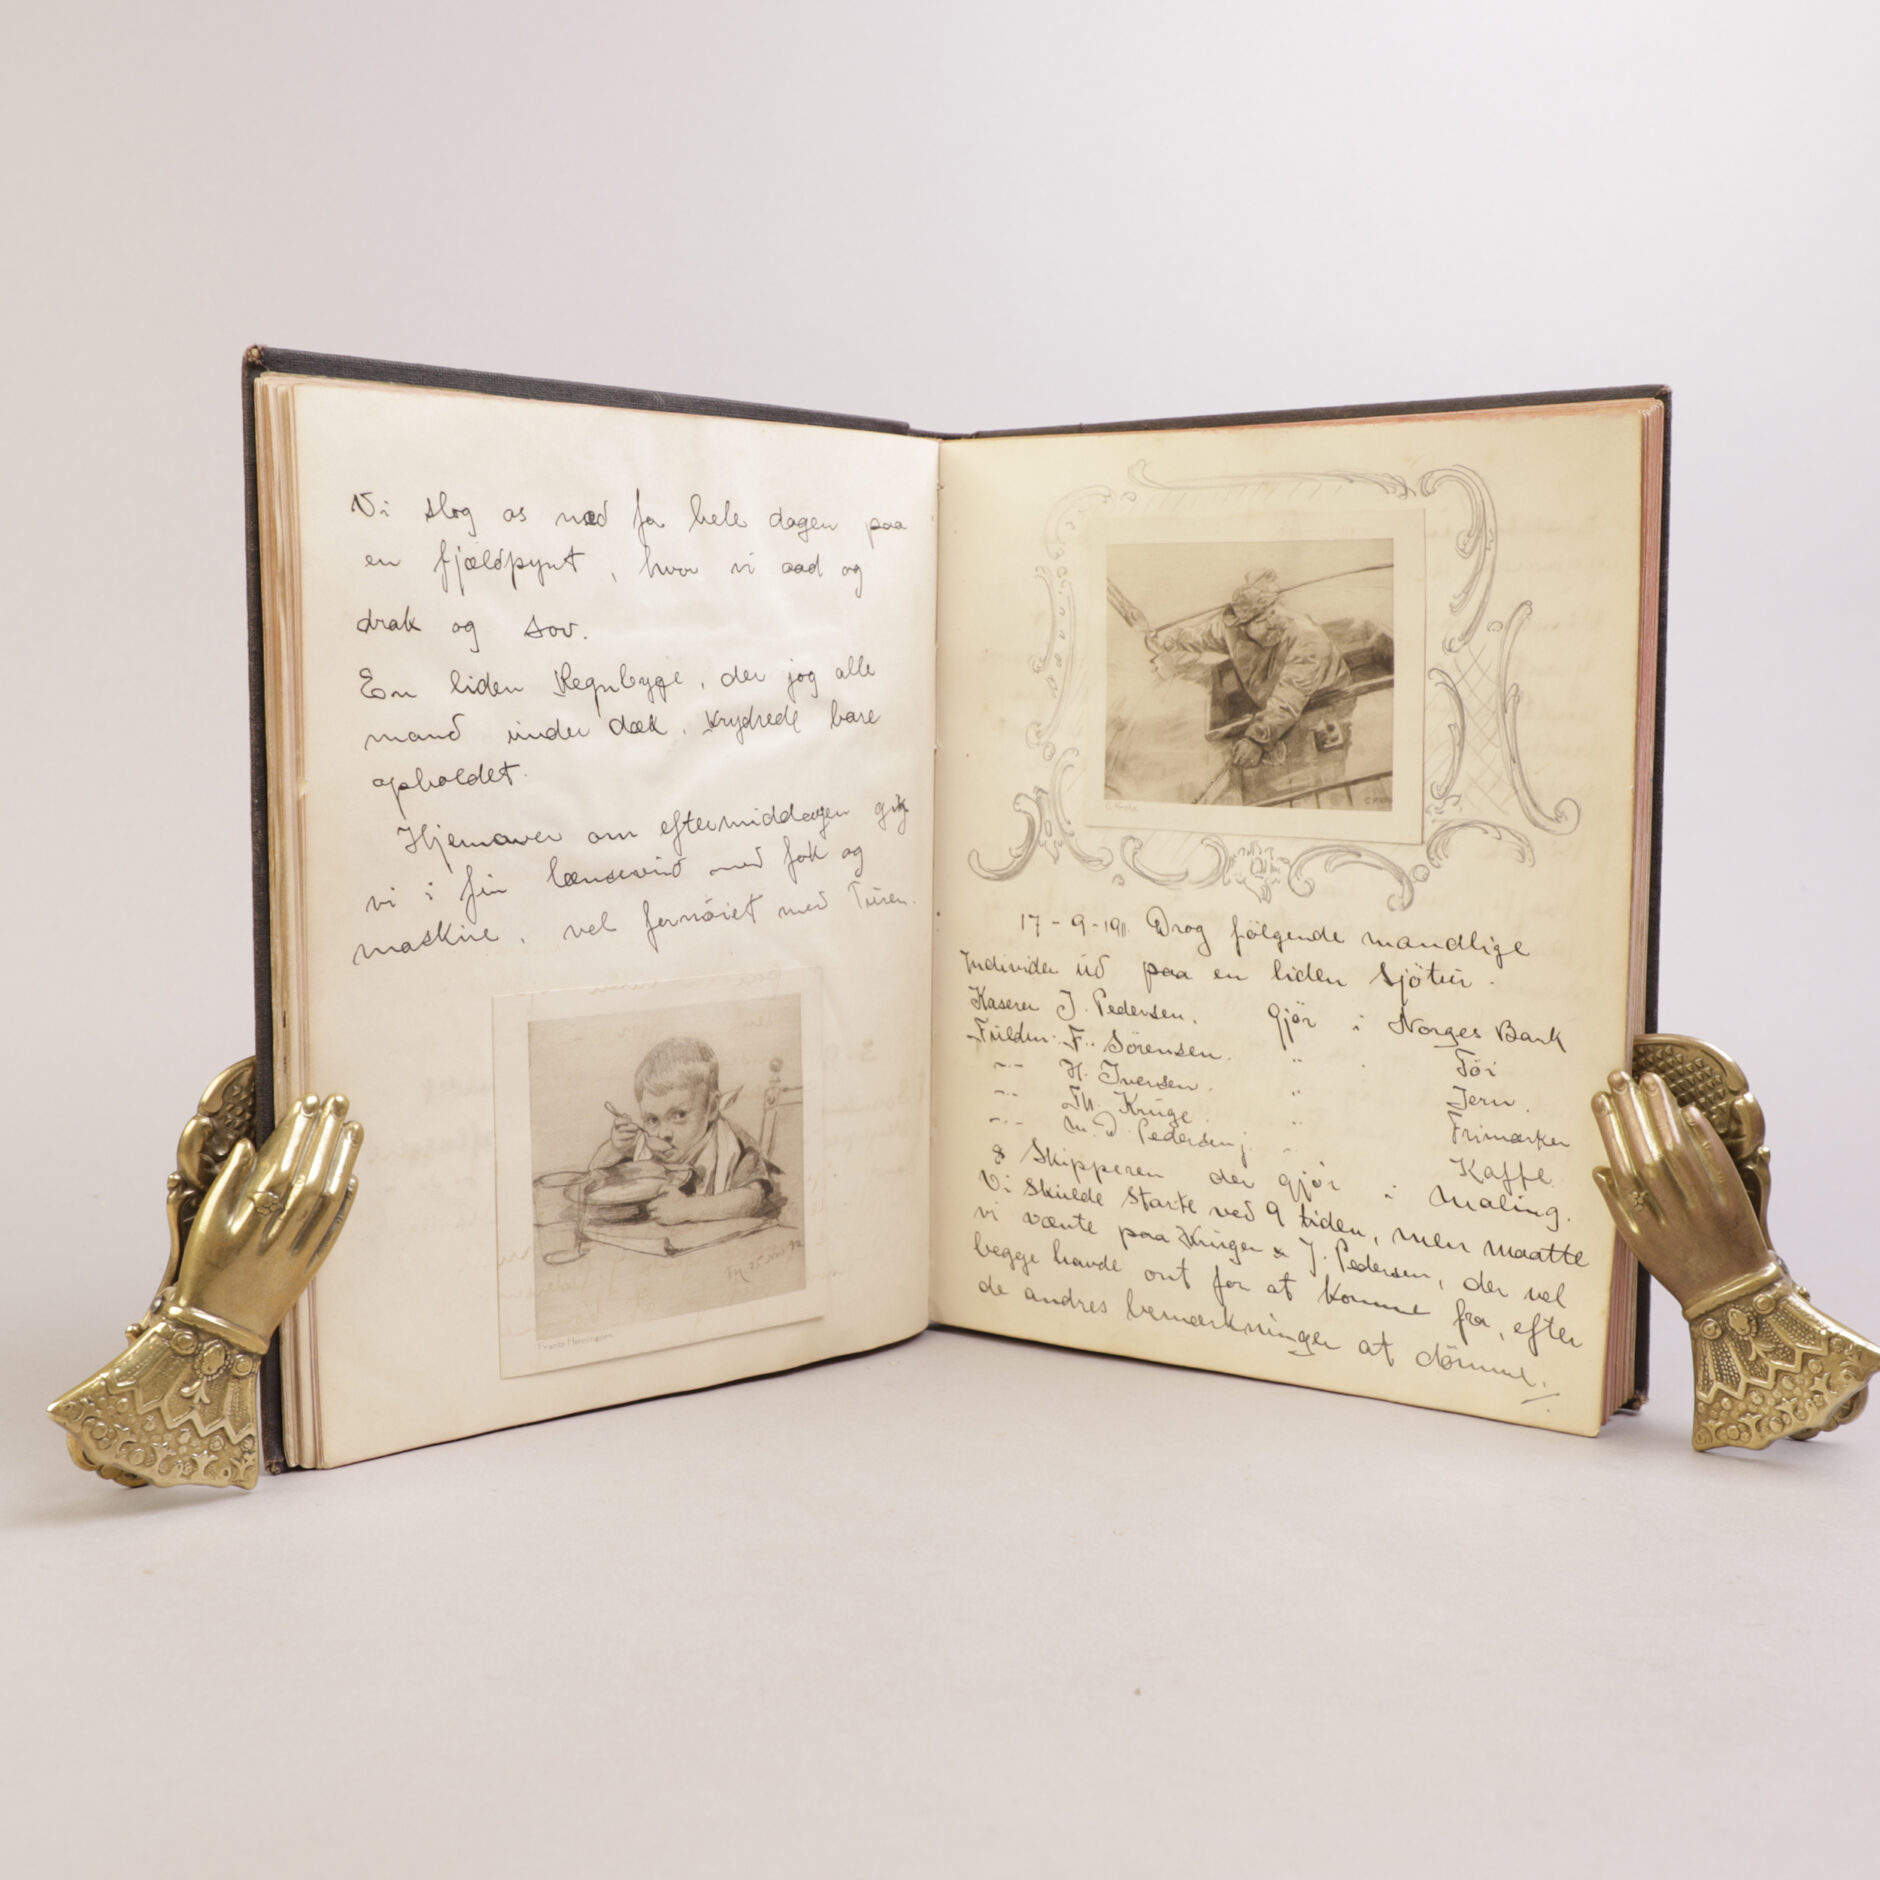 Vi slog os ned for hele dagen paa
en fjældpynt, hvor vi aad og
drak og sov.
En liden Regnbyge, der jog alle
mand under dæk, krydrede bare
opholdet.
Hjemover om eftermiddagen gik
vi i fin lænsevind med fok og
maskine, vel fornöiet med Turen.
FH 25 Nov 92
Frants Henningsen
C. Krohg
17-9-1911. Drog fölgende mandlige
Individer ud paa en liden Sjötur.
Kaserer J. Pedersen. Gjör i Norges Bank
Fuldm. F. Sörensen. " Töi
-"- H. Iversen. " Jern.
-"- Th. Kruge. " Frimærker
-"- M. D. Pedersen j. " Kaffe
& Skipperen der gjör i Maling.
Vi skulde starte ved 9 tiden, men maatte
vi vænte paa Kruger & J. Pedersen, der vel
begge havde ont for at komme fra, efter
de andres bemærkninger at dömme.